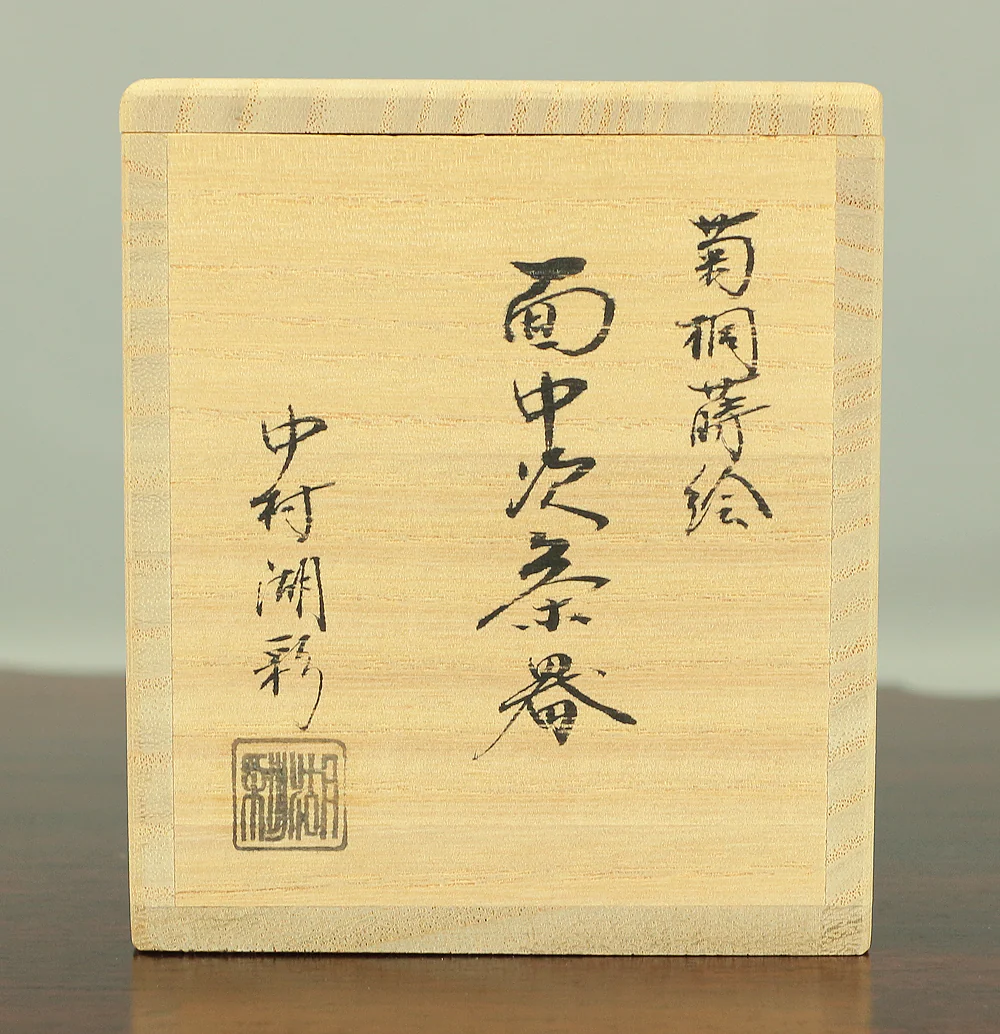 菊桐蒔絵
面中次茶器
中村湖彩
湖彩